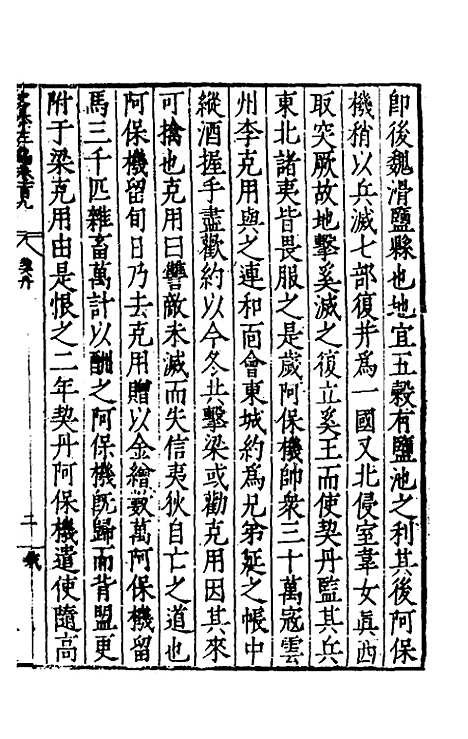 即後魏滑鹽縣也地宜五穀有鹽池之利其後阿保
機稍以兵滅七部復并爲一國又北侵室韋女眞西
取突厥故地擊奚滅之復立奚王而使契丹監其兵
東北諸夷皆畏服之是歲阿保機帥衆三十萬寇雲
州李克用與之連和面會東城約爲兄弟延之帳中
縱酒握手盡歡約以今冬共擊梁或勸克用因其來
可擒也克用曰讐敵未滅而失信夷狄自亡之道也
阿保機留旬日乃去克用贈以金繒數萬阿保機留
馬三千匹雜畜萬計以酬之阿保機旣歸而背盟更
附于梁克用由是恨之二年契丹阿保機遣使隨高
卷二百九
契丹
二